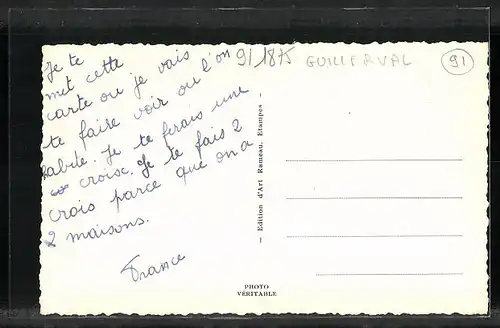 Je te
met cette
carte ou je vais
te faise voir ou l'on
habite. Je te ferais une
croisc. Je te fais 2
crois parce que on a
2 maisons.
France
9/1875
GUILLERVAL
91
— Edition d'Art Rameau, Etampes —
PHOTO
VÉRITABLE